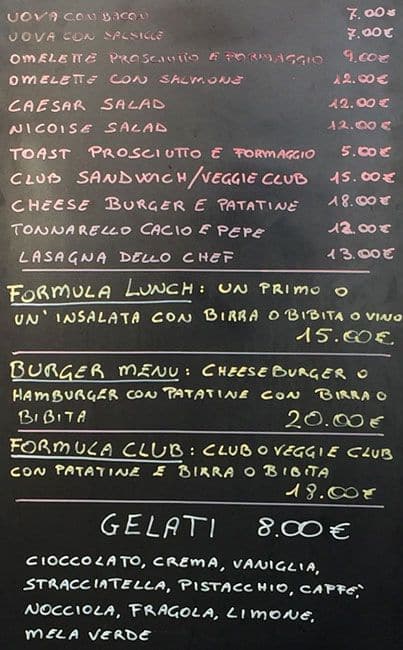 UOVA CON BACON 7.00€
UOVA CON SALSICCE 7.00€
OMELETTE PROSCIUTTO E FORMAGGIO 9.00€
OMELETTE CON SALMONE 12.00€
CAESAR SALAD 12.00€
NICOISE SALAD 12.00€
TOAST PROSCIUTTO E FORMAGGIO 5.00€
CLUB SANDWICH/VEGGIE CLUB 15.00€
CHEESE BURGER E PATATINE 18.00€
TONNARELLO CACIO E PEPE 12.00€
LASAGNA DELLO CHEF 13.00€
FORMULA LUNCH: UN PRIMO O
UN'INSALATA CON BIRRA O BIBITA O VINO
15.00€
BURGER MENU: CHEESEBURGER O
HAMBURGER CON PATATINE CON BIRRA O
BIBITA 20.00€
FORMULA CLUB: CLUB O VEGGIE CLUB
CON PATATINE E BIRRA O BIBITA
18.00€
GELATI 8.00€
CIOCCOLATO, CREMA, VANIGLIA,
STRACCIATELLA, PISTACCHIO, CAFFÈ,
NOCCIOLA, FRAGOLA, LIMONE,
MELA VERDE